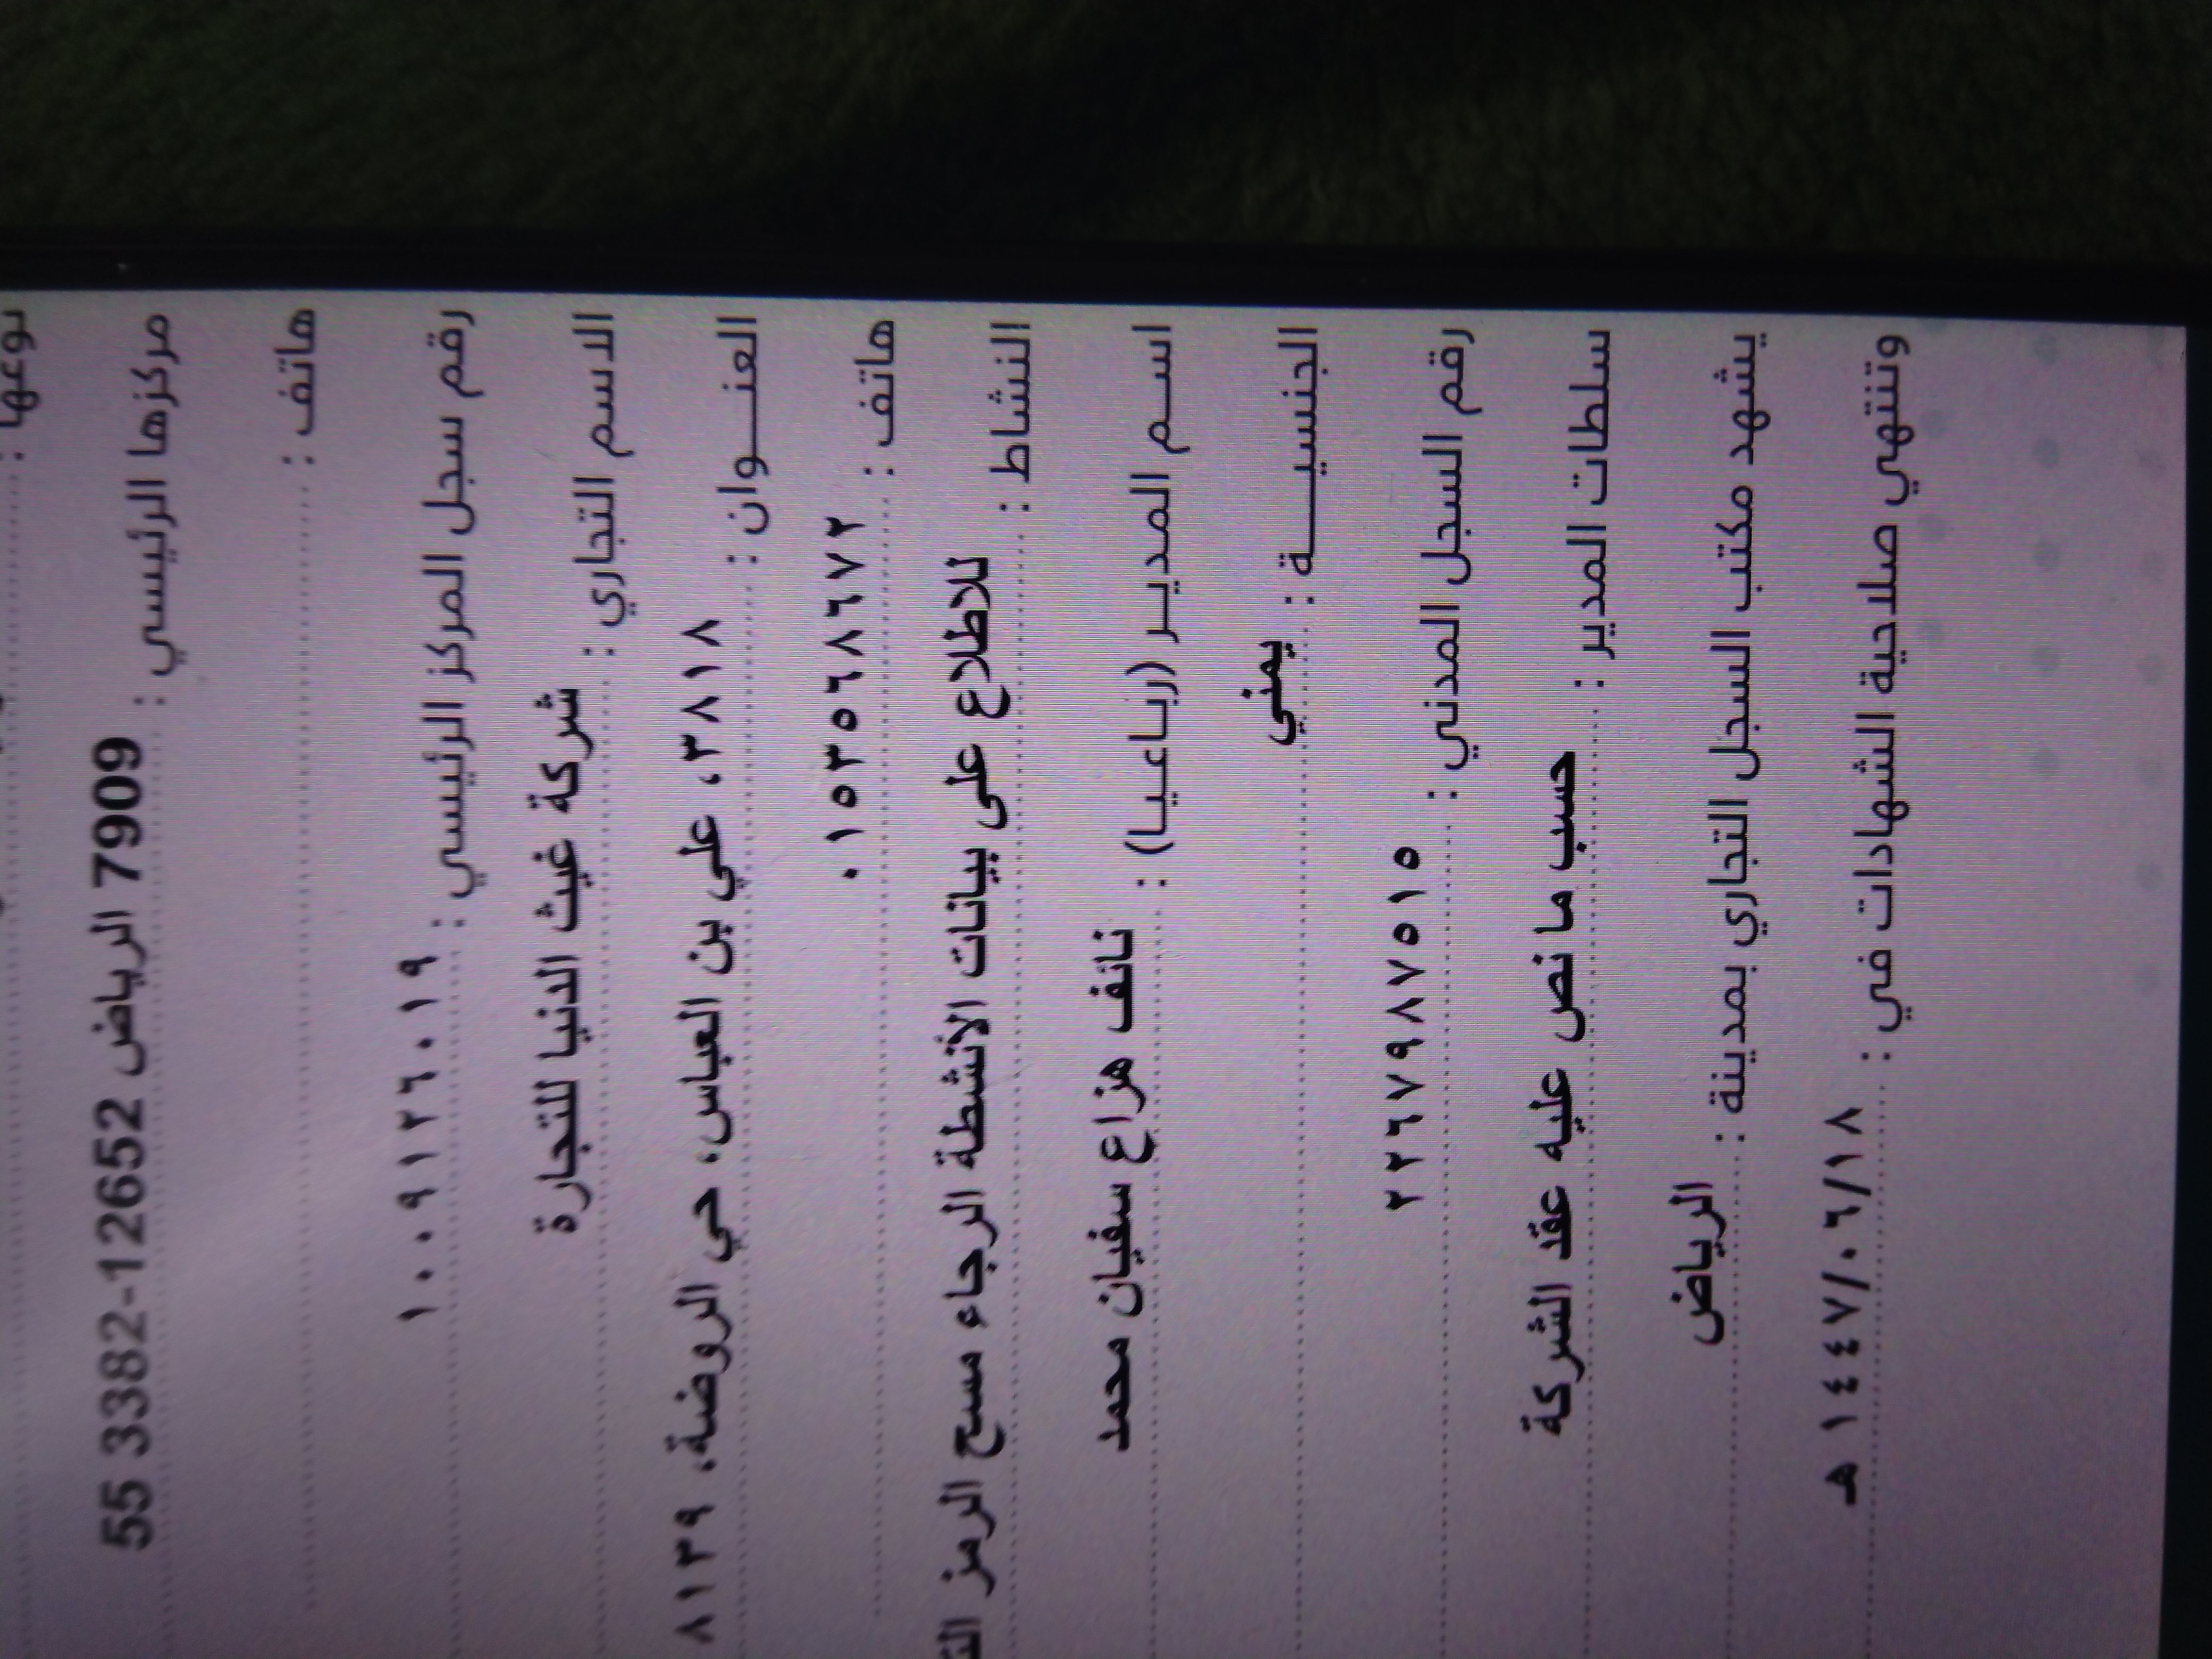 نوعها :
مركزها الرئيسي : 7909 الرياض 12652-3382 55
هاتف :
رقم سجل المركز الرئيسي : ١٠٠٩١٢٦٠١٩
الاسم التجاري : شركة غيث الدنيا للتجارة
العنـــوان : ٣٨١٨، علي بن العباس، حي الروضة، ٨١٣٩
هاتف : ٠١٥٣٥٦٨٦٧٢
النشاط : للاطلاع على بيانات الأنشطة الرجاء مسح الرمز
اســم المديــر (رباعيـا) : نائف هزاع سفيان محمد
الجنسيـــــة : يمني
رقم السجل المدني : ٢٢٦٧٩٨٧٥١٥
سلطات المدير : حسب ما نص عليه عقد الشركة
يشهد مكتب السجل التجاري بمدينة : الرياض
وتنتهي صلاحية الشهادات في : ١٤٤٧/٠٦/١٨ هـ